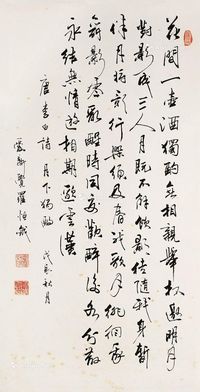 花間一壺酒獨酌無相親舉杯邀明月
對影成三人月既不解飲影徒隨我身暫
伴月將影行樂須及春我歌月徘徊我
舞影零亂醒時同交歡醉後各分散
永結無情遊相期邈雲漢
唐李白詩月下獨酌 秋月
愛新覺羅恒